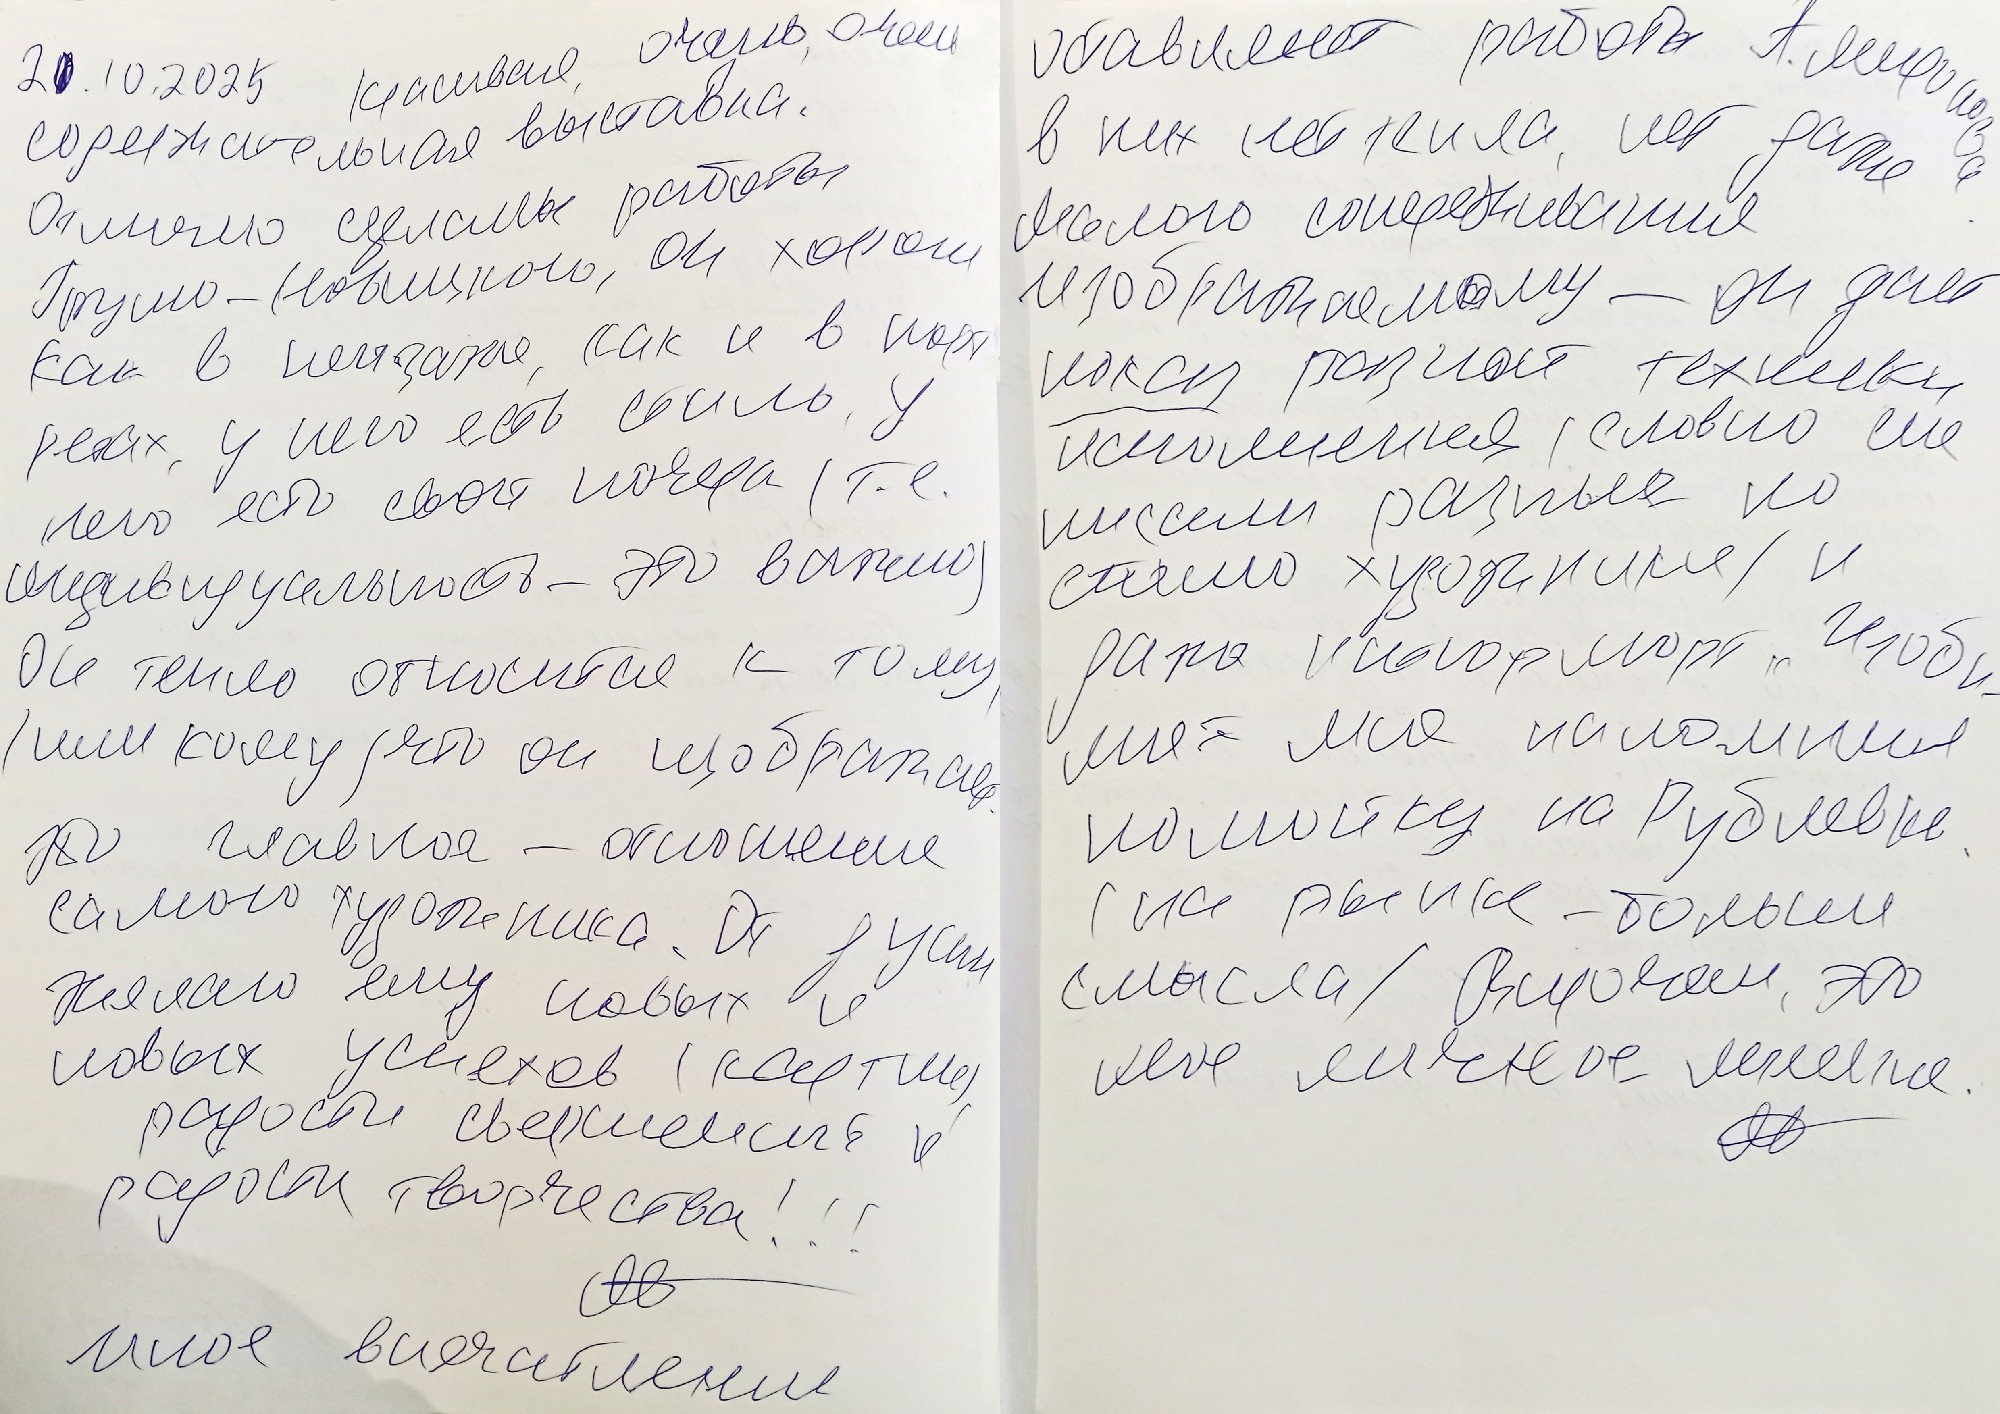 21.10.2025 Красивая, очень, очень
содержательная выставка.
Отлично сделаны работы
Грумо-Новицкого, он хорош
как в пейзаже, как и в порт
ретах, у него есть стиль, у
него есть свой почерк (т.е.
индивидуальность – это важно)
Он тепло относится к тому,
(или кому) что он изображает.
Это главное – отношение
самого художника. От души
желаю ему новых и
новых успехов (картин)
радости свершений и
радости творчества!!!
Иное впечатление
оставляют работы А. Миронова
в них нет жила, нет даже
малого сопереживания
изображаемому – он дает
показ разной техники
исполнения (словно их
писали разные по
стилю художники) и
даже натюрморт "Изоби-
лие" мне напомнил
помойку на Рублевке.
(на рынке – больше
смысла) Впрочем, это
мое личное мнение.